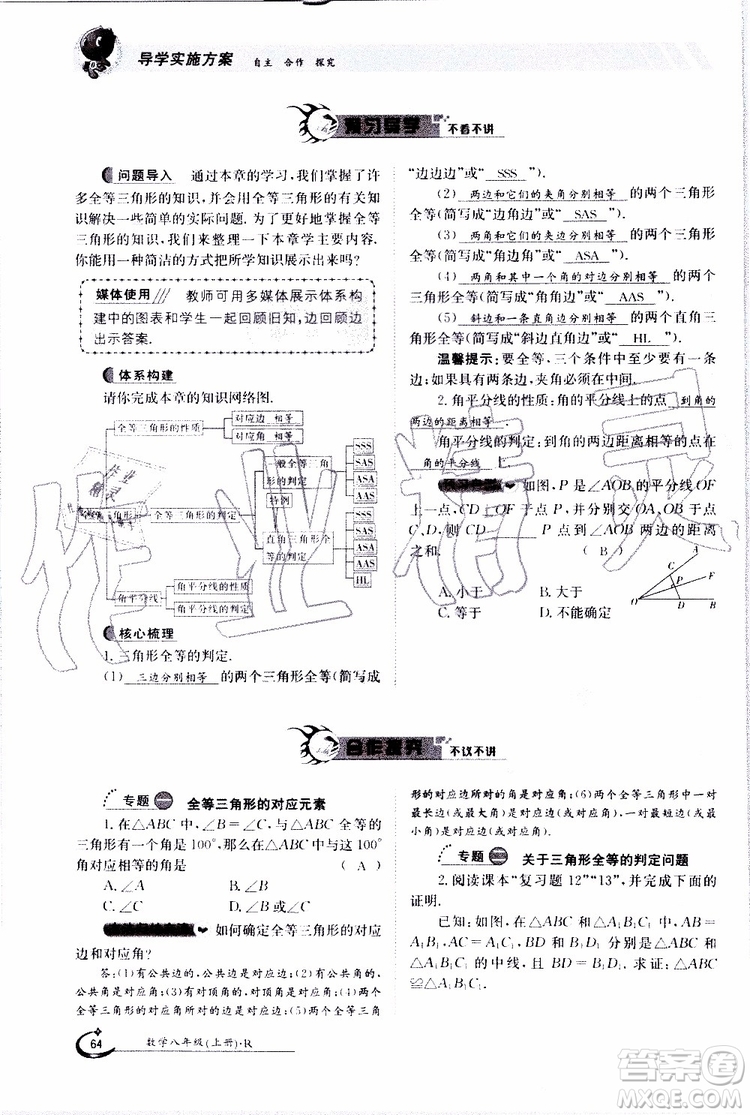 导学实施方案 自主 合作 探究
预习导学 不看不讲
问题导入 通过本章的学习,我们掌握了许
多全等三角形的知识,并能用全等三角形的知
识解决一些简单的实际问题.为了更好地掌握全等
三角形的知识,我们来整理一下本章学习内容.
你能用一种简洁的方式把所学知识展示出来吗?
媒体使用 教师可用多媒体展示体系构
建中的图表和学生一起回顾旧知,边回顾边
出示答案.
体系构建
请你完成本章的知识网络图.
全等三角形的性质
对应边 相等
对应角 相等
全等三角形的判定
一般全等三角
形的判定
SSS
SAS
ASA
AAS
特例
直角三角形全
等的判定
SSS
SAS
ASA
AAS
HL
角平分线
角平分线的性质
角平分线的判定
核心梳理
1.三角形全等的判定.
(1) 三边分别相等 的两个三角形全等(简写成
“边边边”或“ SSS ”).
(2) 两边和它们的夹角分别相等 的两个三角形
全等(简写成“边角边”或“ SAS ”).
(3) 两角和它们的夹边分别相等 的两个三角形
全等(简写成“角边角”或“ ASA ”).
(4) 两角和其中一个角的对边分别相等 的两个
三角形全等(简写成“角角边”或“ AAS ”).
(5) 斜边和一条直角边分别相等 的两个直角三
角形全等(简写成“斜边直角边”或“ HL ”).
温馨提示:要全等,三个条件中至少要有一条
边:如果是两边一角,夹角必在中间.
2.角平分线的性质:角的平分线上的点 到角的
两边的距离相等 .
角平分线的判定:到角的两边距离相等的点在
角的平分线 上.
如图,P是∠AOB的平分线OF
上一点,CD⊥OF于点P,并分别交OA、OB于点
C、D,则CD 点P到∠AOB两边的距离
之和. ( B )
A.小于 B.大于
C.等于 D.不能确定
A
C
F
P
O
D
B
合作探究 不议不讲
专题一 全等三角形的对应元素
1.在△ABC中,∠B=∠C,与△ABC全等的三
角形有一个角是100°,那么在△ABC中与这个100°
角对应相等的角是 ( A )
A.∠A B.∠B
C.∠C D.∠B或∠C
如何确定全等三角形的对应
边和对应角?
答:(1)有公共边的,公共边是对应边;(2)有公共角的,
公共角是对应角;(3)有对顶角的,对顶角是对应角;(4)两个
全等三角形的对应角所对的边是对应边;(5)两个全等三角
形的对应边所对的角是对应角;(6)两个全等三角形中一对
最长边(或最大角)是对应边(或对应角),一对最短边(或最
小角)是对应边(或对应角).
专题二 关于三角形全等的判定问题
2.阅读课本“复习题12”“13”,并完成下面的
证明.
已知:如图,在△ABC和△A₁B₁C₁中,AB=
A₁B₁,AC=A₁C₁,BD和B₁D₁分别是△ABC和
△A₁B₁C₁的中线,且BD=B₁D₁.求证:△ABC
≌△A₁B₁C₁.
64 数学八年级(上册)·R
作业精灵
答案圈
MXQE.COM